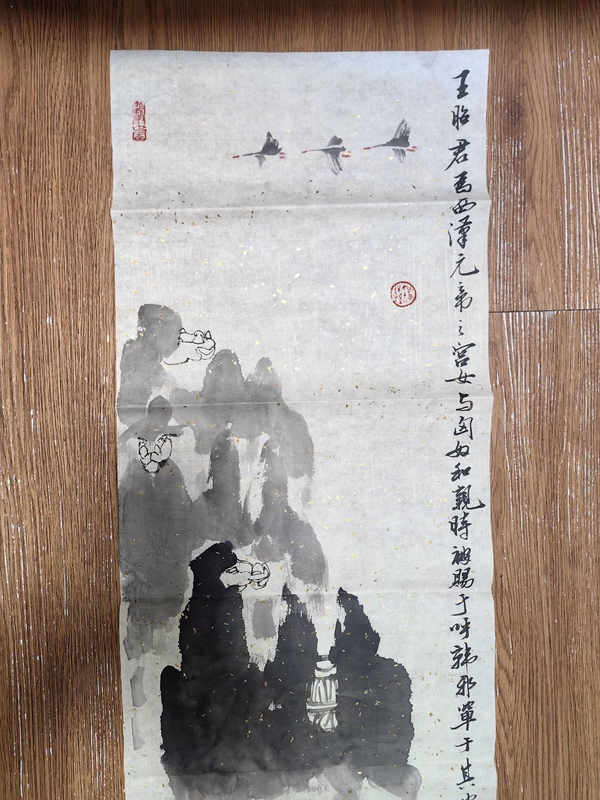 王昭君為西漢元帝之宮女与匈奴和親時被賜于呼韩邪單于其